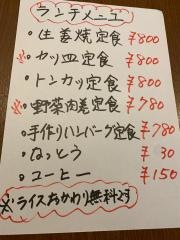 ランチメニュー
・生姜焼定食 ¥800
・カツ皿定食 ¥800
・トンカツ定食 ¥800
・野菜肉巻定食 ¥780
・手作りハンバーグ定食 ¥780
・なっとう ¥30
・コーヒー ¥150
※ライスおかわり無料です